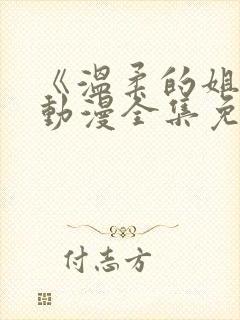 《温柔的姐
动漫全集免
付志方